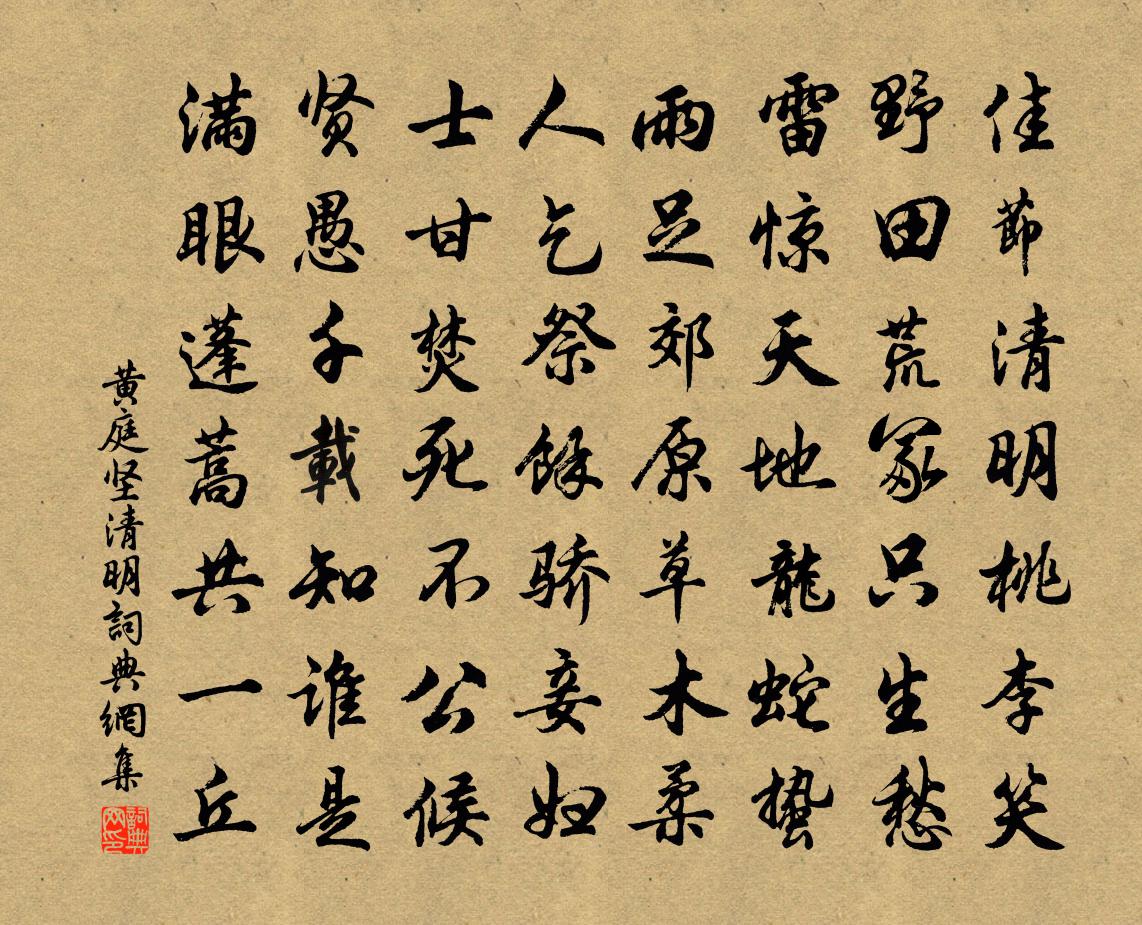 佳節清明桃李笑
野田荒冢只生愁
雷惊天地龍蛇蟄
雨足郊原草木柔
人乞祭餘骄妾妇
士甘焚死不公候
贤愚千載知谁是
满眼蓬蒿共一丘
黄庭坚清明詞典網集
詞典网印